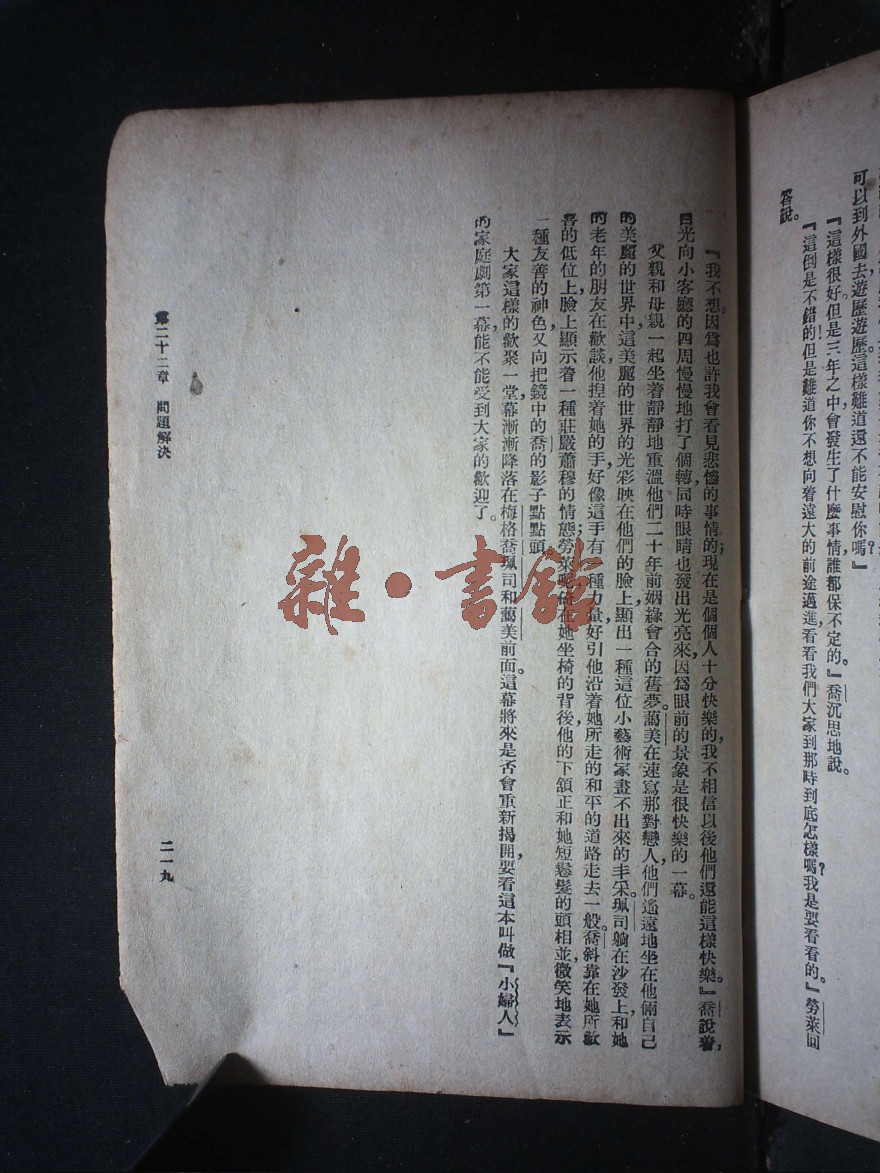 可以到外國去遊歷遊歷，這樣難道還不能安慰你嗎？』
『這樣很好！但是三年之中會發生了什麼事情，誰都保不定的。』喬沉思地說。
『這倒是不錯的，但是難道你不想向着遠大的前途邁進，看看我們大家到那時到底怎樣嗎？我是要看看的。』勞萊回
答說。
『我不想，因爲也許我會看見悲慘的事情的；現在是個個人十分快樂的，我不相信以後他們還能這樣快樂。』喬說着，
目光向小客廳的四周慢慢地打了個轉，同時眼睛也發出光亮來，因爲眼前的景象是很快樂的一幕。
父親和母親一起坐着，靜靜地重溫他們二十年前姻緣會合的舊夢。藹美在速寫那對戀人，他們遙遠地坐在他倆自己
的美麗的世界中，這美麗的世界的光彩映在他們的臉上，顯出一種這位小藝術家畫不出來的丰采。珮司躺在沙發上，和她
的老年的朋友在歡談，他捏着她的手，好像這手有一種力量好引他沿着她所走的和平的道路走去一般。喬斜靠在她所歡
喜的低位上，臉上顯示着一種莊嚴蕭穆的情態；勞萊
在她坐椅的背後，他的下頷正和她短鬈髮的頭相並，微笑地表示
一種友善的神色，又向把鏡中的喬的影子點點頭。
大家這樣的歡聚一堂，幕漸漸降落在梅格喬珮司和藹美前面。這幕將來是否會重新揭開，要看這本叫做『小婦人』
的家庭劇第一幕，能不能受到大家的歡迎了。
第二十二章　問題解決
二一九
雜·書館